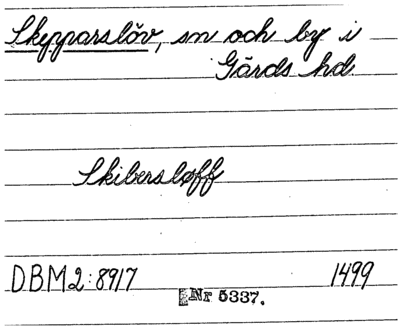 Skepparslöv, sn och by i
Gärds hd.
Skibersløff
DBM2:8917 1499
Nr 5337.